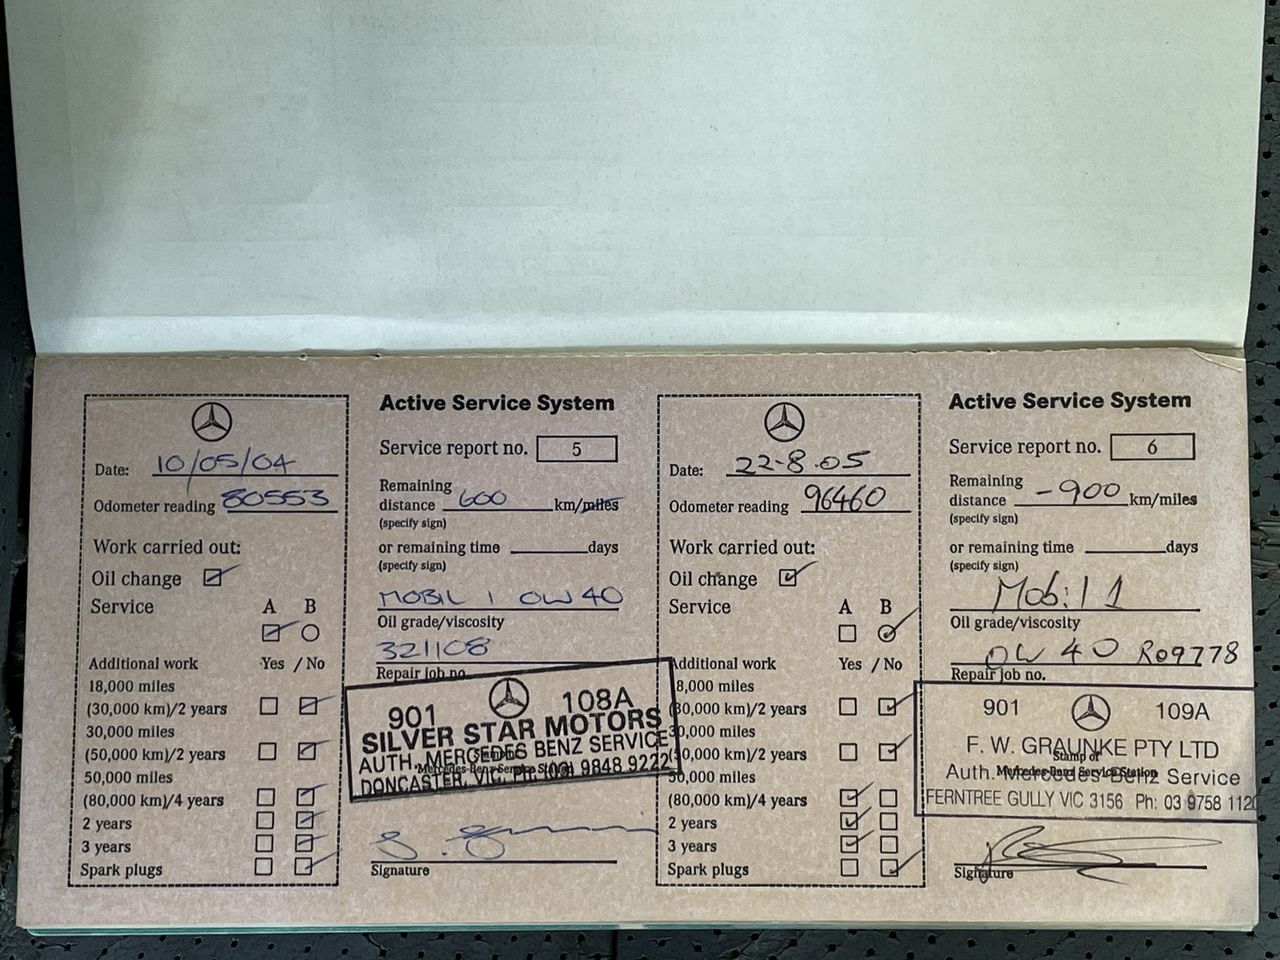 Active Service System
Service report no. 5
Date: 10/05/04
Remaining
distance 600 km/miles
(specify sign)
Odometer reading 80553
Work carried out:
or remaining time days
(specify sign)
Oil change
Service A B
MOBIL 1 0W 40
Oil grade/viscosity
321108
Repair job no.
Additional work Yes / No
18,000 miles
(30,000 km)/2 years
30,000 miles
(50,000 km)/2 years
50,000 miles
(80,000 km)/4 years
2 years
3 years
Spark plugs
901 108A
SILVER STAR MOTORS
AUTH. MERCEDES BENZ SERVICE
DONCASTER, VIC. PH: (03) 9848 9222
Stamp of
Mercedes-Benz Service Station
Signature
Active Service System
Service report no. 6
Date: 22-8.05
Remaining
distance -900 km/miles
(specify sign)
Odometer reading 96460
Work carried out:
or remaining time days
(specify sign)
Oil change
Service A B
Mobil 1
Oil grade/viscosity
0W 40 R09778
Repair job no.
Additional work Yes / No
8,000 miles
(30,000 km)/2 years
30,000 miles
(50,000 km)/2 years
50,000 miles
(80,000 km)/4 years
2 years
3 years
Spark plugs
901 109A
F. W. GRAUNKE PTY LTD
Auth. Mercedes-Benz Service
FERNTREE GULLY VIC 3156 Ph: 03 9758 1120
Stamp of
Mercedes-Benz Service Station
Signature